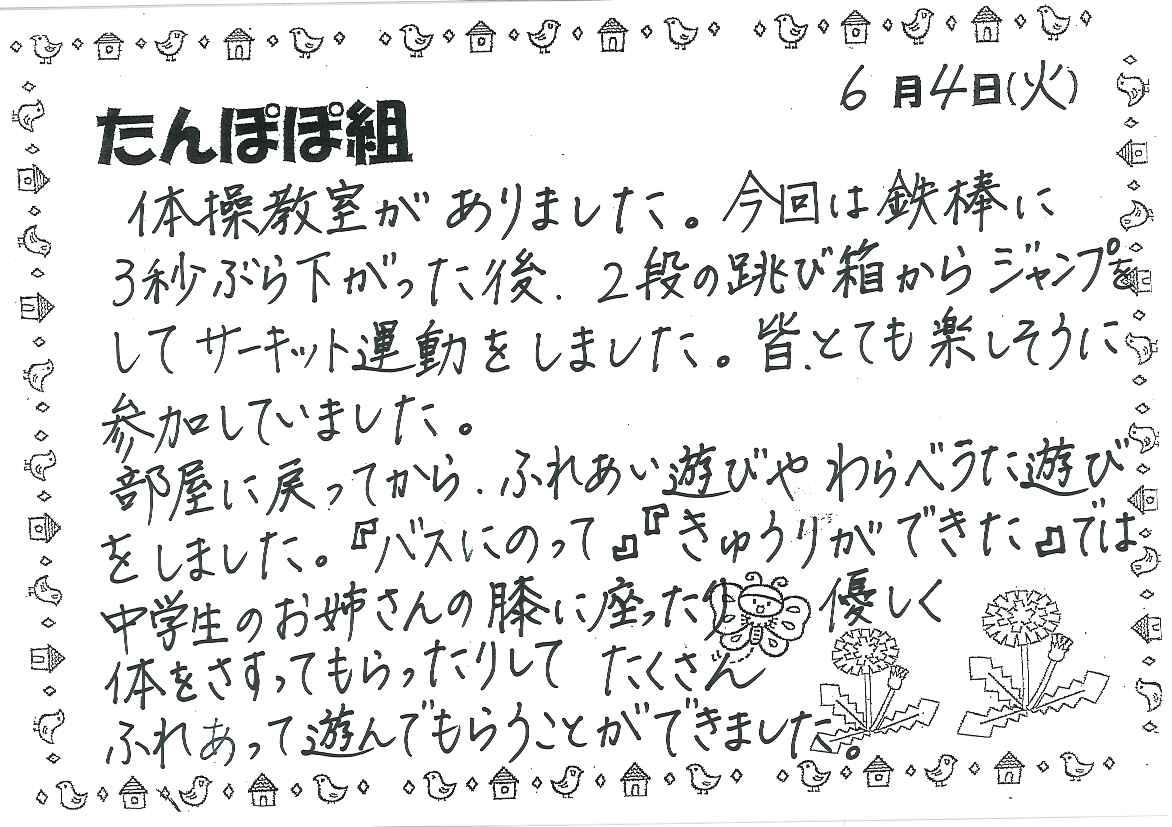 6月4日(火)
たんぽぽ組
体操教室がありました。今回は鉄棒に
3秒ぶら下がった後、2段の跳び箱からジャンプを
してサーキット運動をしました。皆、とても楽しそうに
参加していました。
部屋に戻ってから、ふれあい遊びやわらべうた遊び
をしました。『バスにのって』『きゅうりができた』では
中学生のお姉さんの膝に座ったり 優しく
体をさすってもらったりして たくさん
ふれあって遊んでもらうことができました。